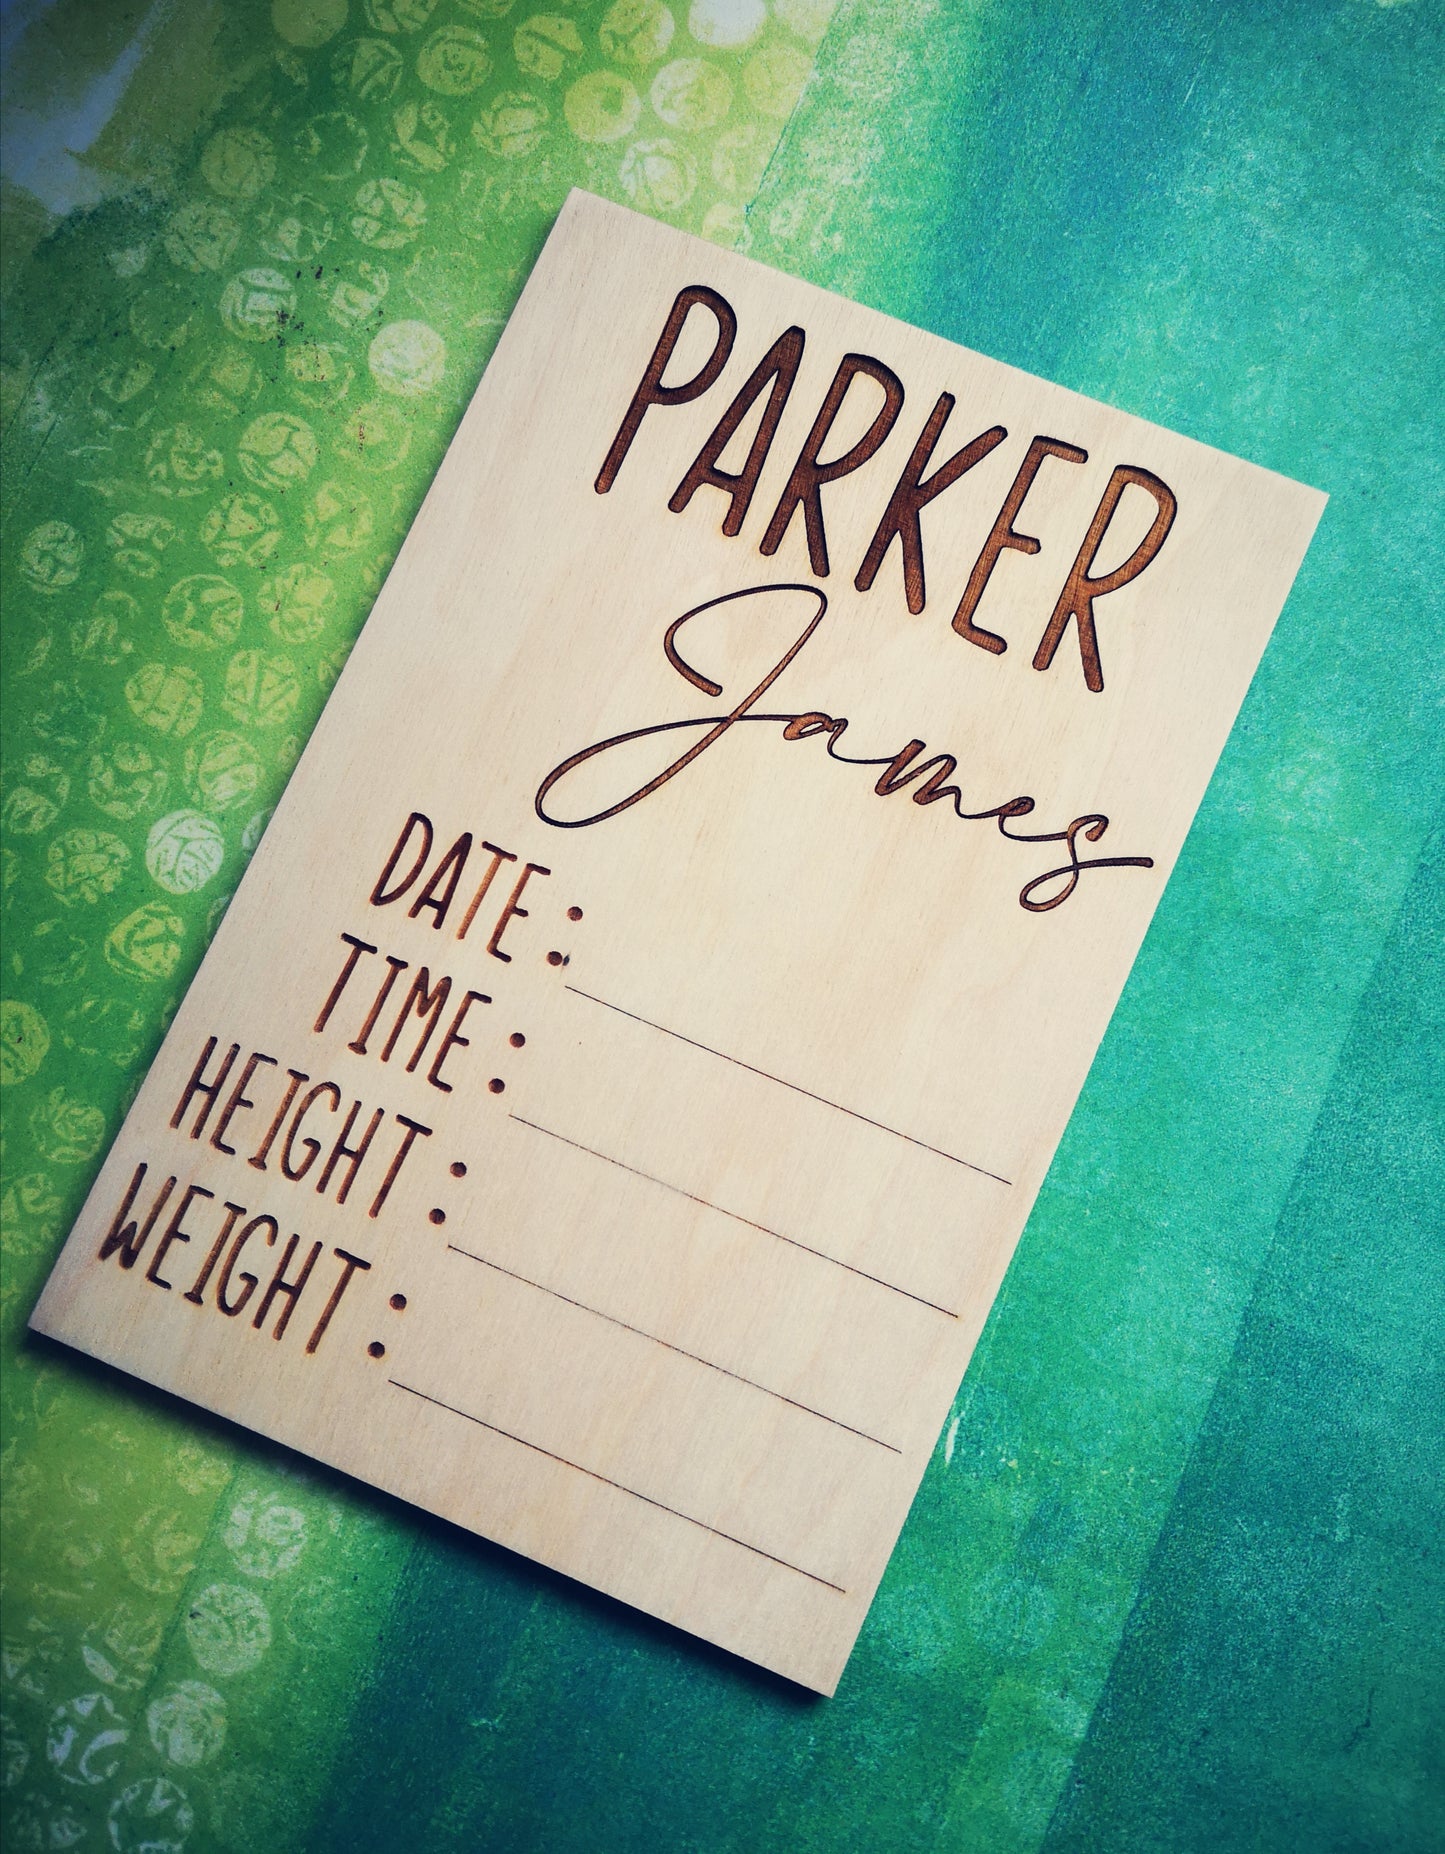 PARKER
James
DATE:
TIME:
HEIGHT:
WEIGHT: